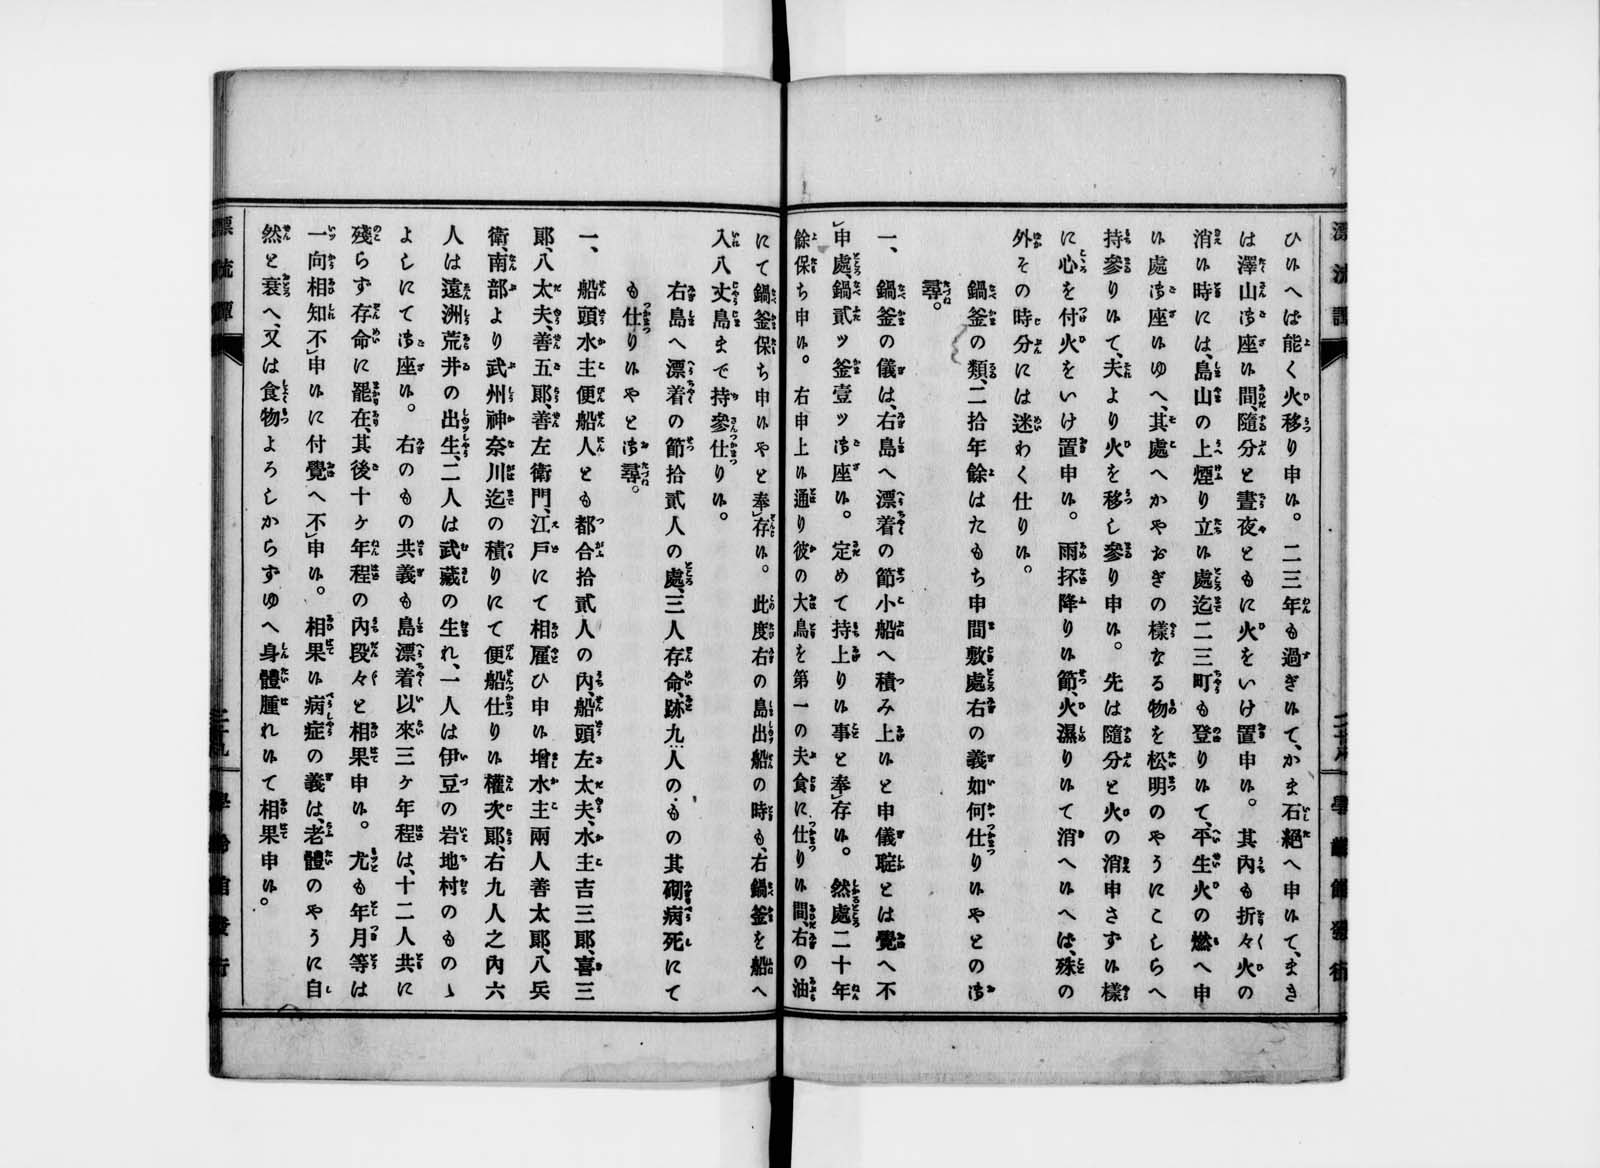 ひいへば能く火移り申い。二三年も過ぎいて、かま石絕へ申いて、まき
は澤山御座い間、隨分と晝夜ともに火をいけ置申い。其內も折々火の
消い時には、島山の上煙り立い處迄二三町も登りいて、平生火の燃へ申
い處御座いゆへ、其處へかやおぎの樣なる物を松明のやうにこしらへ
持參りいて、夫より火を移し參り申い。先は隨分と火の消申さずい樣
に心を付火をいけ置申い。雨抔降りい節、火濕りいて消へいへは、殊の
外その時分には迷わく仕りい。
鍋釜の類、二拾年餘はたもち申間敷處右の義如何仕りいやとの御
尋。
一、鍋釜の儀は、右島へ漂着の節小船へ積み上いと申儀聢とは覺へ不
申處、鍋貳ッ釜壹ッ御座い。定めて持上りい事と奉存い。然處二十年
餘保ち申い。右申上い通り彼の大鳥を第一の夫食に仕りい間、右の油
にて鍋釜保ち申いやと奉存い。此度右の島出船の時も、右鍋釜を船へ
入八丈島まで持參仕りい。
右島へ漂着の節拾貳人の處、三人存命、跡九人のもの其砌病死にて
も仕りいやと御尋。
一、船頭水主便船人とも都合拾貳人の內、船頭左太夫、水主吉三郞、喜三
郞、八太夫、善五郞、善左衞門、江戶にて相雇ひ申い增水主兩人善太郞、八兵
衞、南部より武州神奈川迄の積りにて便船仕りい權次郞、右九人之內六
人は遠洲荒井の出生、二人は武藏の生れ、一人は伊豆の岩地村のものゝ
よしにて御座い。右のもの共義も島漂着以來三ヶ年程は、十二人共に
殘らず存命に罷在、其後十ヶ年程の內段々と相果申い。尤も年月等は
一向相知不申いに付覺へ不申い。相果い病症の義は、老體のやうに自
然と衰へ、又は食物よろしからずゆへ身體腫れいて相果申い。